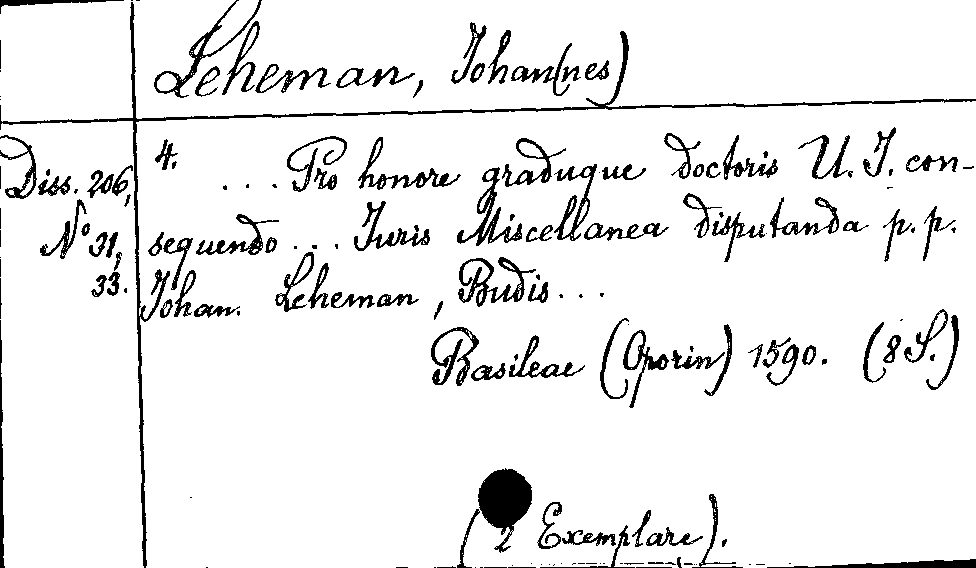 Leheman, Johan(nes)
Diss. 206,
No 31,
33.
4. ... Pro honore graduque doctoris U. J. con-
sequendo ... Juris Miscellanea disputanda p. p.
Johan. Leheman, Budis...
Basileae (Oporin) 1590. (8 S.)
(2 Exemplare).